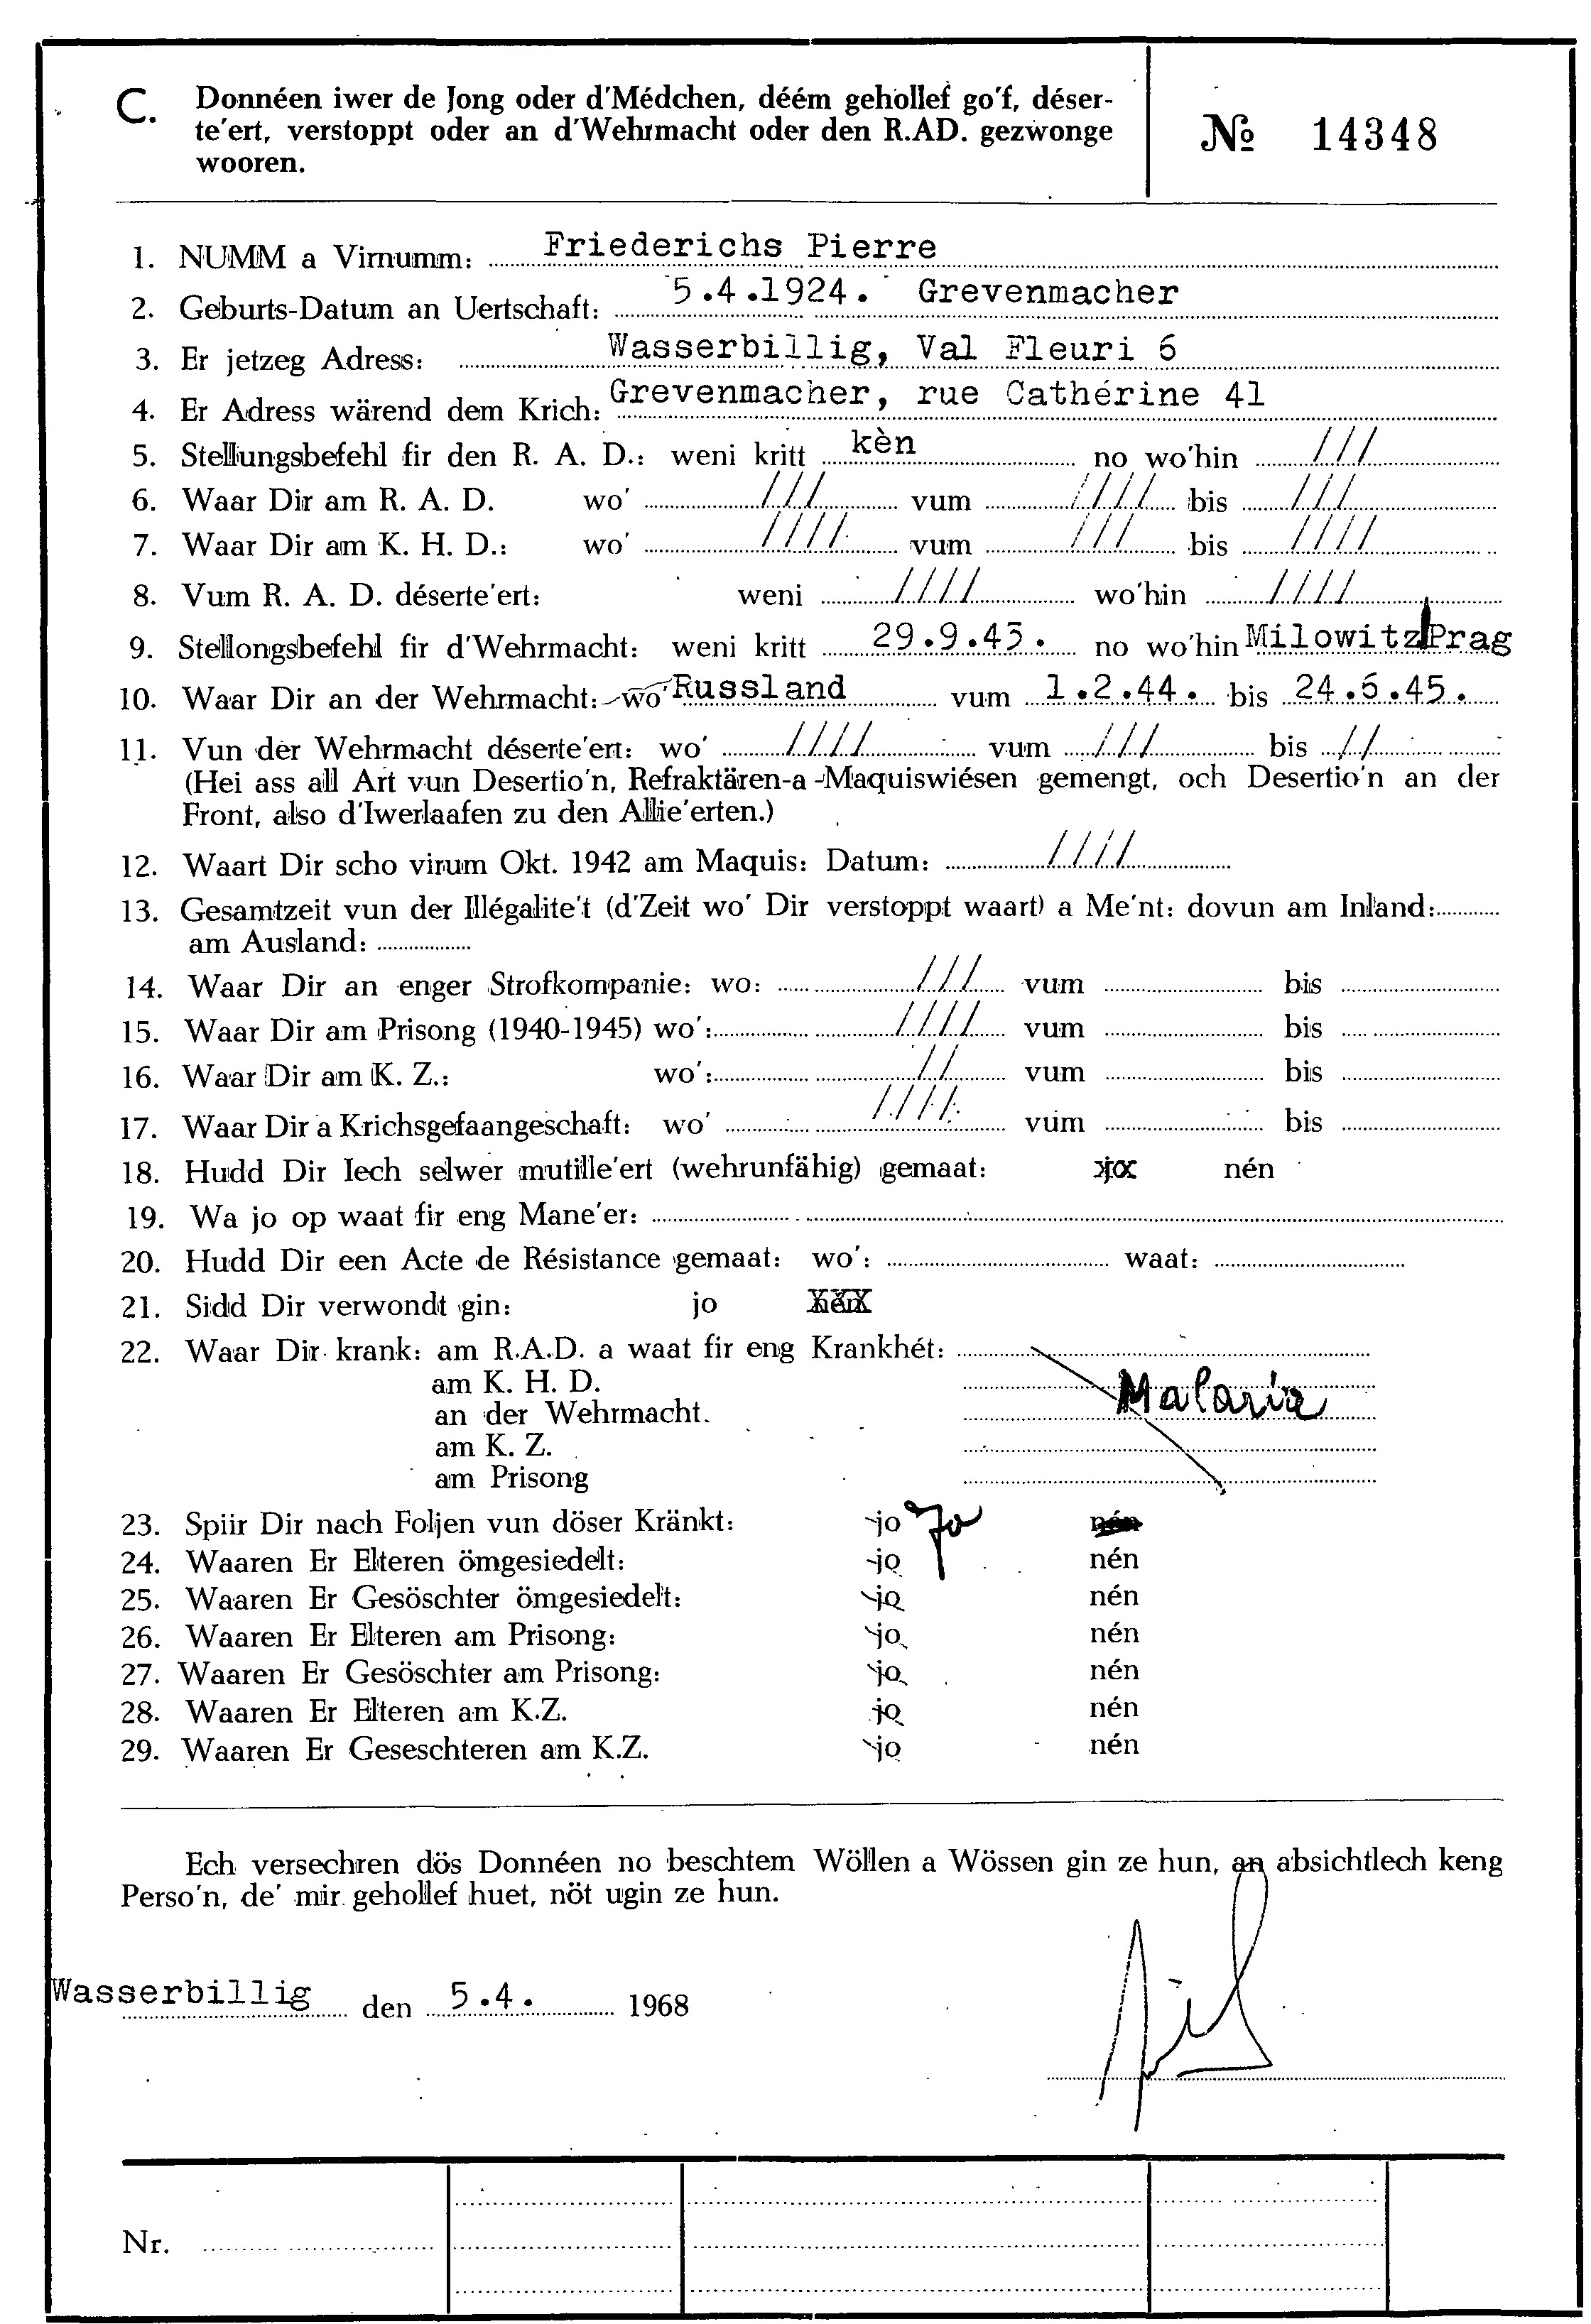 C. Donnéen iwer de Jong oder d'Médchen, déém gehollef go'f, déser-
te'ert, verstoppt oder an d'Wehrmacht oder den R.AD. gezwonge
wooren.
№ 14348
1. NUMM a Virnumm: Friederichs Pierre
2. Geburts-Datum an Uertschaft: 5.4.1924. Grevenmacher
3. Er jetzeg Adress: Wasserbillig, Val Fleuri 6
4. Er Adress wärend dem Krich: Grevenmacher, rue Cathérine 41
5. Stellungsbefehl fir den R. A. D.: weni kritt kèn no wo'hin ///
6. Waar Dir am R. A. D. wo' /// vum //// bis ///
7. Waar Dir am K. H. D.: wo' //// vum /// bis ////
8. Vum R. A. D. déserte'ert: weni //// wo'hin ////
9. Stellongsbefehl fir d'Wehrmacht: weni kritt 29.9.43. no wo'hin Milowitz/Prag
10. Waar Dir an der Wehrmacht: wo' Russland vum 1.2.44. bis 24.6.45.
11. Vun der Wehrmacht déserte'ert: wo' //// vum /// bis //
(Hei ass all Art vun Desertio'n, Refraktären-a-Maquiswiésen gemengt, och Desertio'n an der
Front, also d'Iwerlaafen zu den Allie'erten.)
12. Waart Dir scho virum Okt. 1942 am Maquis: Datum: ////
13. Gesamtzeit vun der Illégalite't (d'Zeit wo' Dir verstoppt waart) a Me'nt: dovun am Inland:
am Ausland:
14. Waar Dir an enger Strofkompanie: wo: /// vum bis
15. Waar Dir am Prisong (1940-1945) wo': //// vum bis
16. Waar Dir am K. Z.: wo': // vum bis
17. Waar Dir a Krichsgefaangeschaft: wo' //// vum bis
18. Hudd Dir Iech selwer mutille'ert (wehrunfähig) gemaat: jo nén
19. Wa jo op waat fir eng Mane'er:
20. Hudd Dir een Acte de Résistance gemaat: wo': waat:
21. Sidd Dir verwondt gin: jo nén
22. Waar Dir krank: am R.A.D. a waat fir eng Krankhét:
am K. H. D.
an der Wehrmacht. Malaria
am K. Z.
am Prisong
23. Spiir Dir nach Foljen vun döser Kränkt: jo Jo nén
24. Waaren Er Elteren ömgesiedelt: jo nén
25. Waaren Er Gesöschter ömgesiedelt: jo nén
26. Waaren Er Elteren am Prisong: jo nén
27. Waaren Er Gesöschter am Prisong: jo nén
28. Waaren Er Elteren am K.Z. jo nén
29. Waaren Er Geseschteren am K.Z. jo nén
Ech versechren dös Donnéen no beschtem Wöllen a Wössen gin ze hun, an absichtlech keng
Perso'n, de' mir gehollef huet, nöt ugin ze hun.
Wasserbillig den 5.4. 1968
Nr.